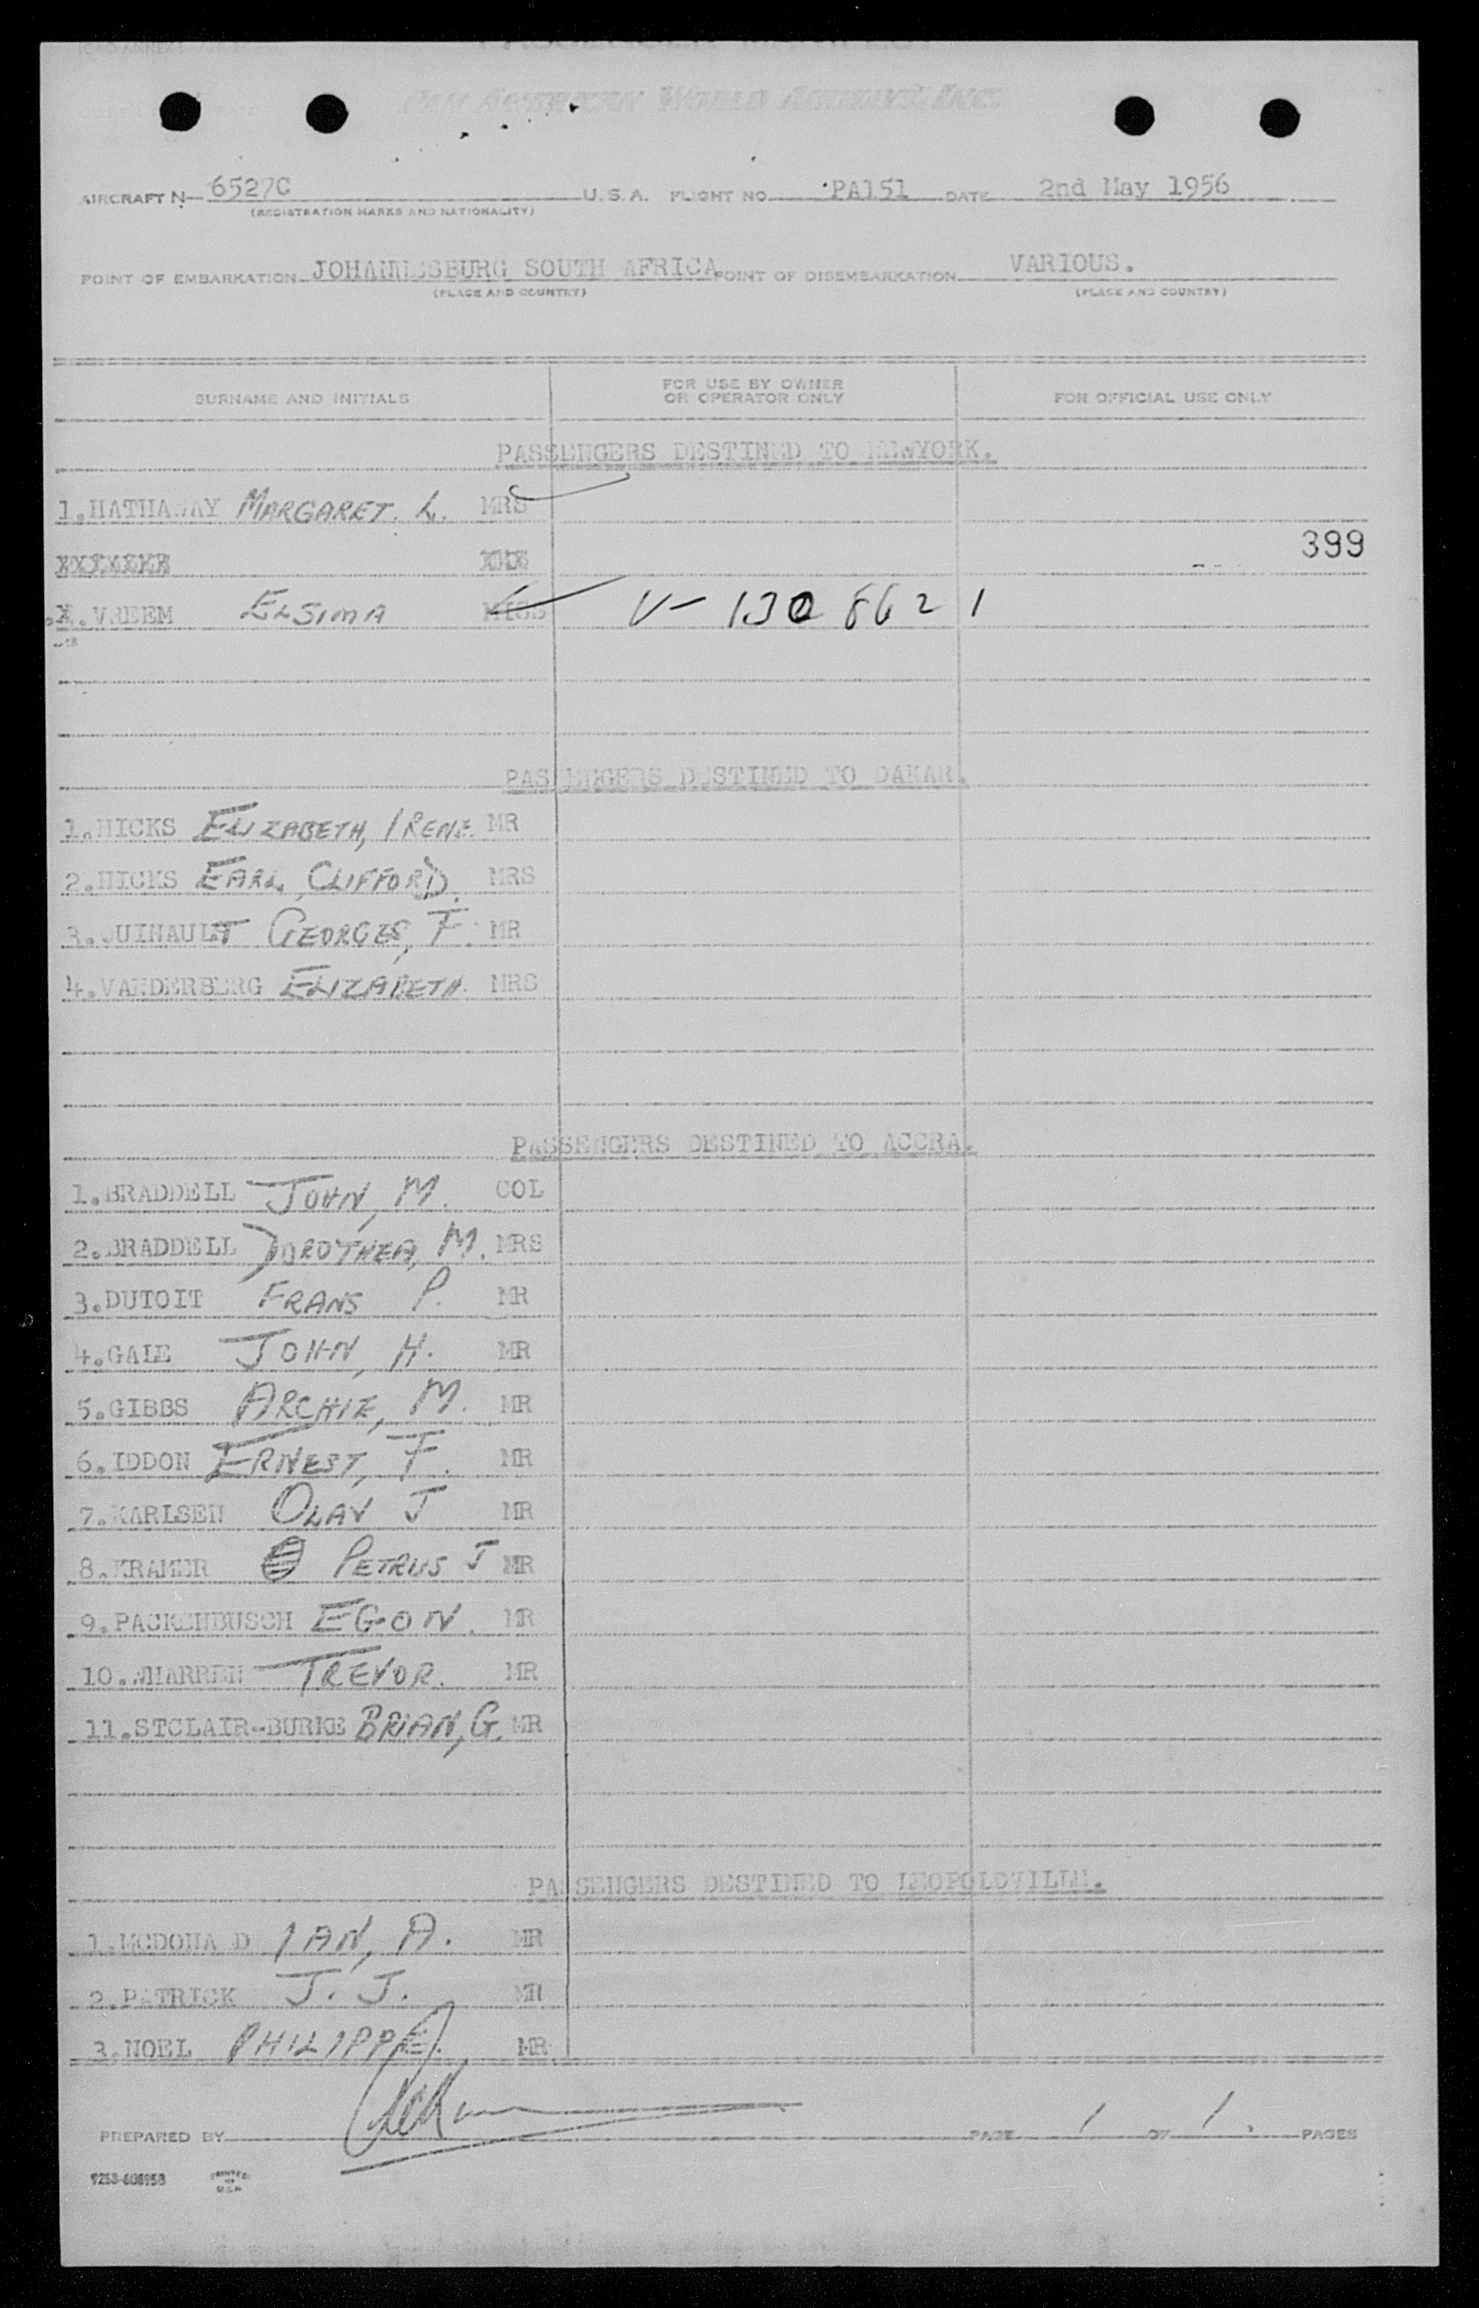 PASSENGER MANIFEST
PAN AMERICAN WORLD AIRWAYS, INC.
AIRCRAFT N- 6527C U.S.A. FLIGHT NO. PA151 DATE 2nd May 1956
(REGISTRATION MARKS AND NATIONALITY)
POINT OF EMBARKATION JOHANNESBURG SOUTH AFRICA POINT OF DISEMBARKATION VARIOUS.
(PLACE AND COUNTRY) (PLACE AND COUNTRY)
SURNAME AND INITIALS FOR USE BY OWNER OR OPERATOR ONLY FOR OFFICIAL USE ONLY
PASSENGERS DESTINED TO NEWYORK.
1.HATHAWAY MARGARET. L. MRS
399
VREEM ELSIMA MISS V-1308621
PASSENGERS DESTINED TO DAKAR.
1.HICKS ELIZABETH, IRENE. MR
2.HICKS EARL, CLIFFORD. MRS
3.QUINAULT GEORGES, F. MR
4.VANDERBERG ELIZABETH. MRS
PASSENGERS DESTINED TO ACCRA.
1.BRADDELL JOHN, M. COL
2.BRADDELL DOROTHEA, M. MRS
3.DUTOIT FRANS P. MR
4.GALE JOHN, H. MR
5.GIBBS ARCHIE, M. MR
6.IDDON ERNEST, F. MR
7.KARLSEN OLAV J MR
8.KRAMER PETRUS J MR
9.PACKENBUSCH EGON. MR
10.WHARREN TREVOR. MR
11.STCLAIR-BURKE BRIAN, G. MR
PASSENGERS DESTINED TO LEOPOLDVILLE.
1.MCDONALD IAN, A. MR
2.PATRICK J. J. MR
3.NOEL PHILIPPE. MR
PREPARED BY PAGE 1 OF 1. PAGES
9253-608958 PRINTED IN U.S.A.